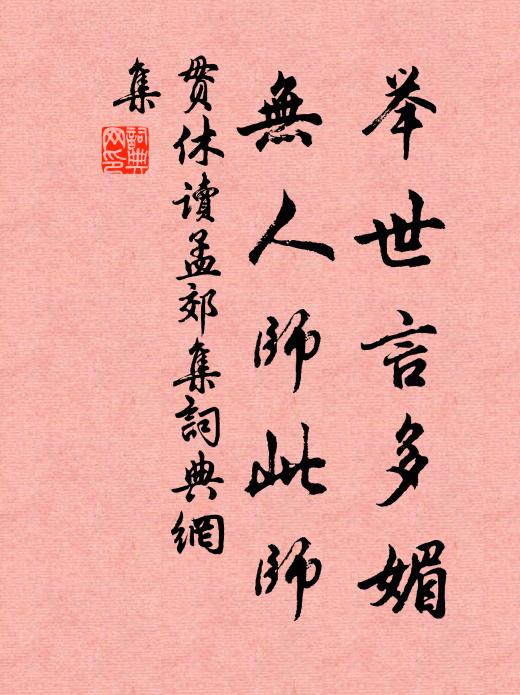 举世言多媚
無人師此師
貫休讀孟郊集詞典網
集
詞典
网印